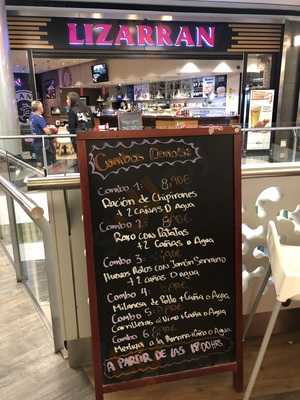 LIZARRAN
Combo 1: 8,90€
Ración de Chipirones
+ 2 Cañas o Agua
Combo 2: 8,90€
Rabo con Patatas
+ 2 Cañas o Agua
Combo 3:
Huevos Rotos con Jamón Serrano
+ 2 Cañas o agua
Combo 4
Milanesa de Pollo + Caña o Agua
Combo 5:
Carrilleras al Vino + Caña o Agua
Combo 6:
Merluza a la Romana + Caña o Agua
A PARTIR DE LAS 17:00 HRS